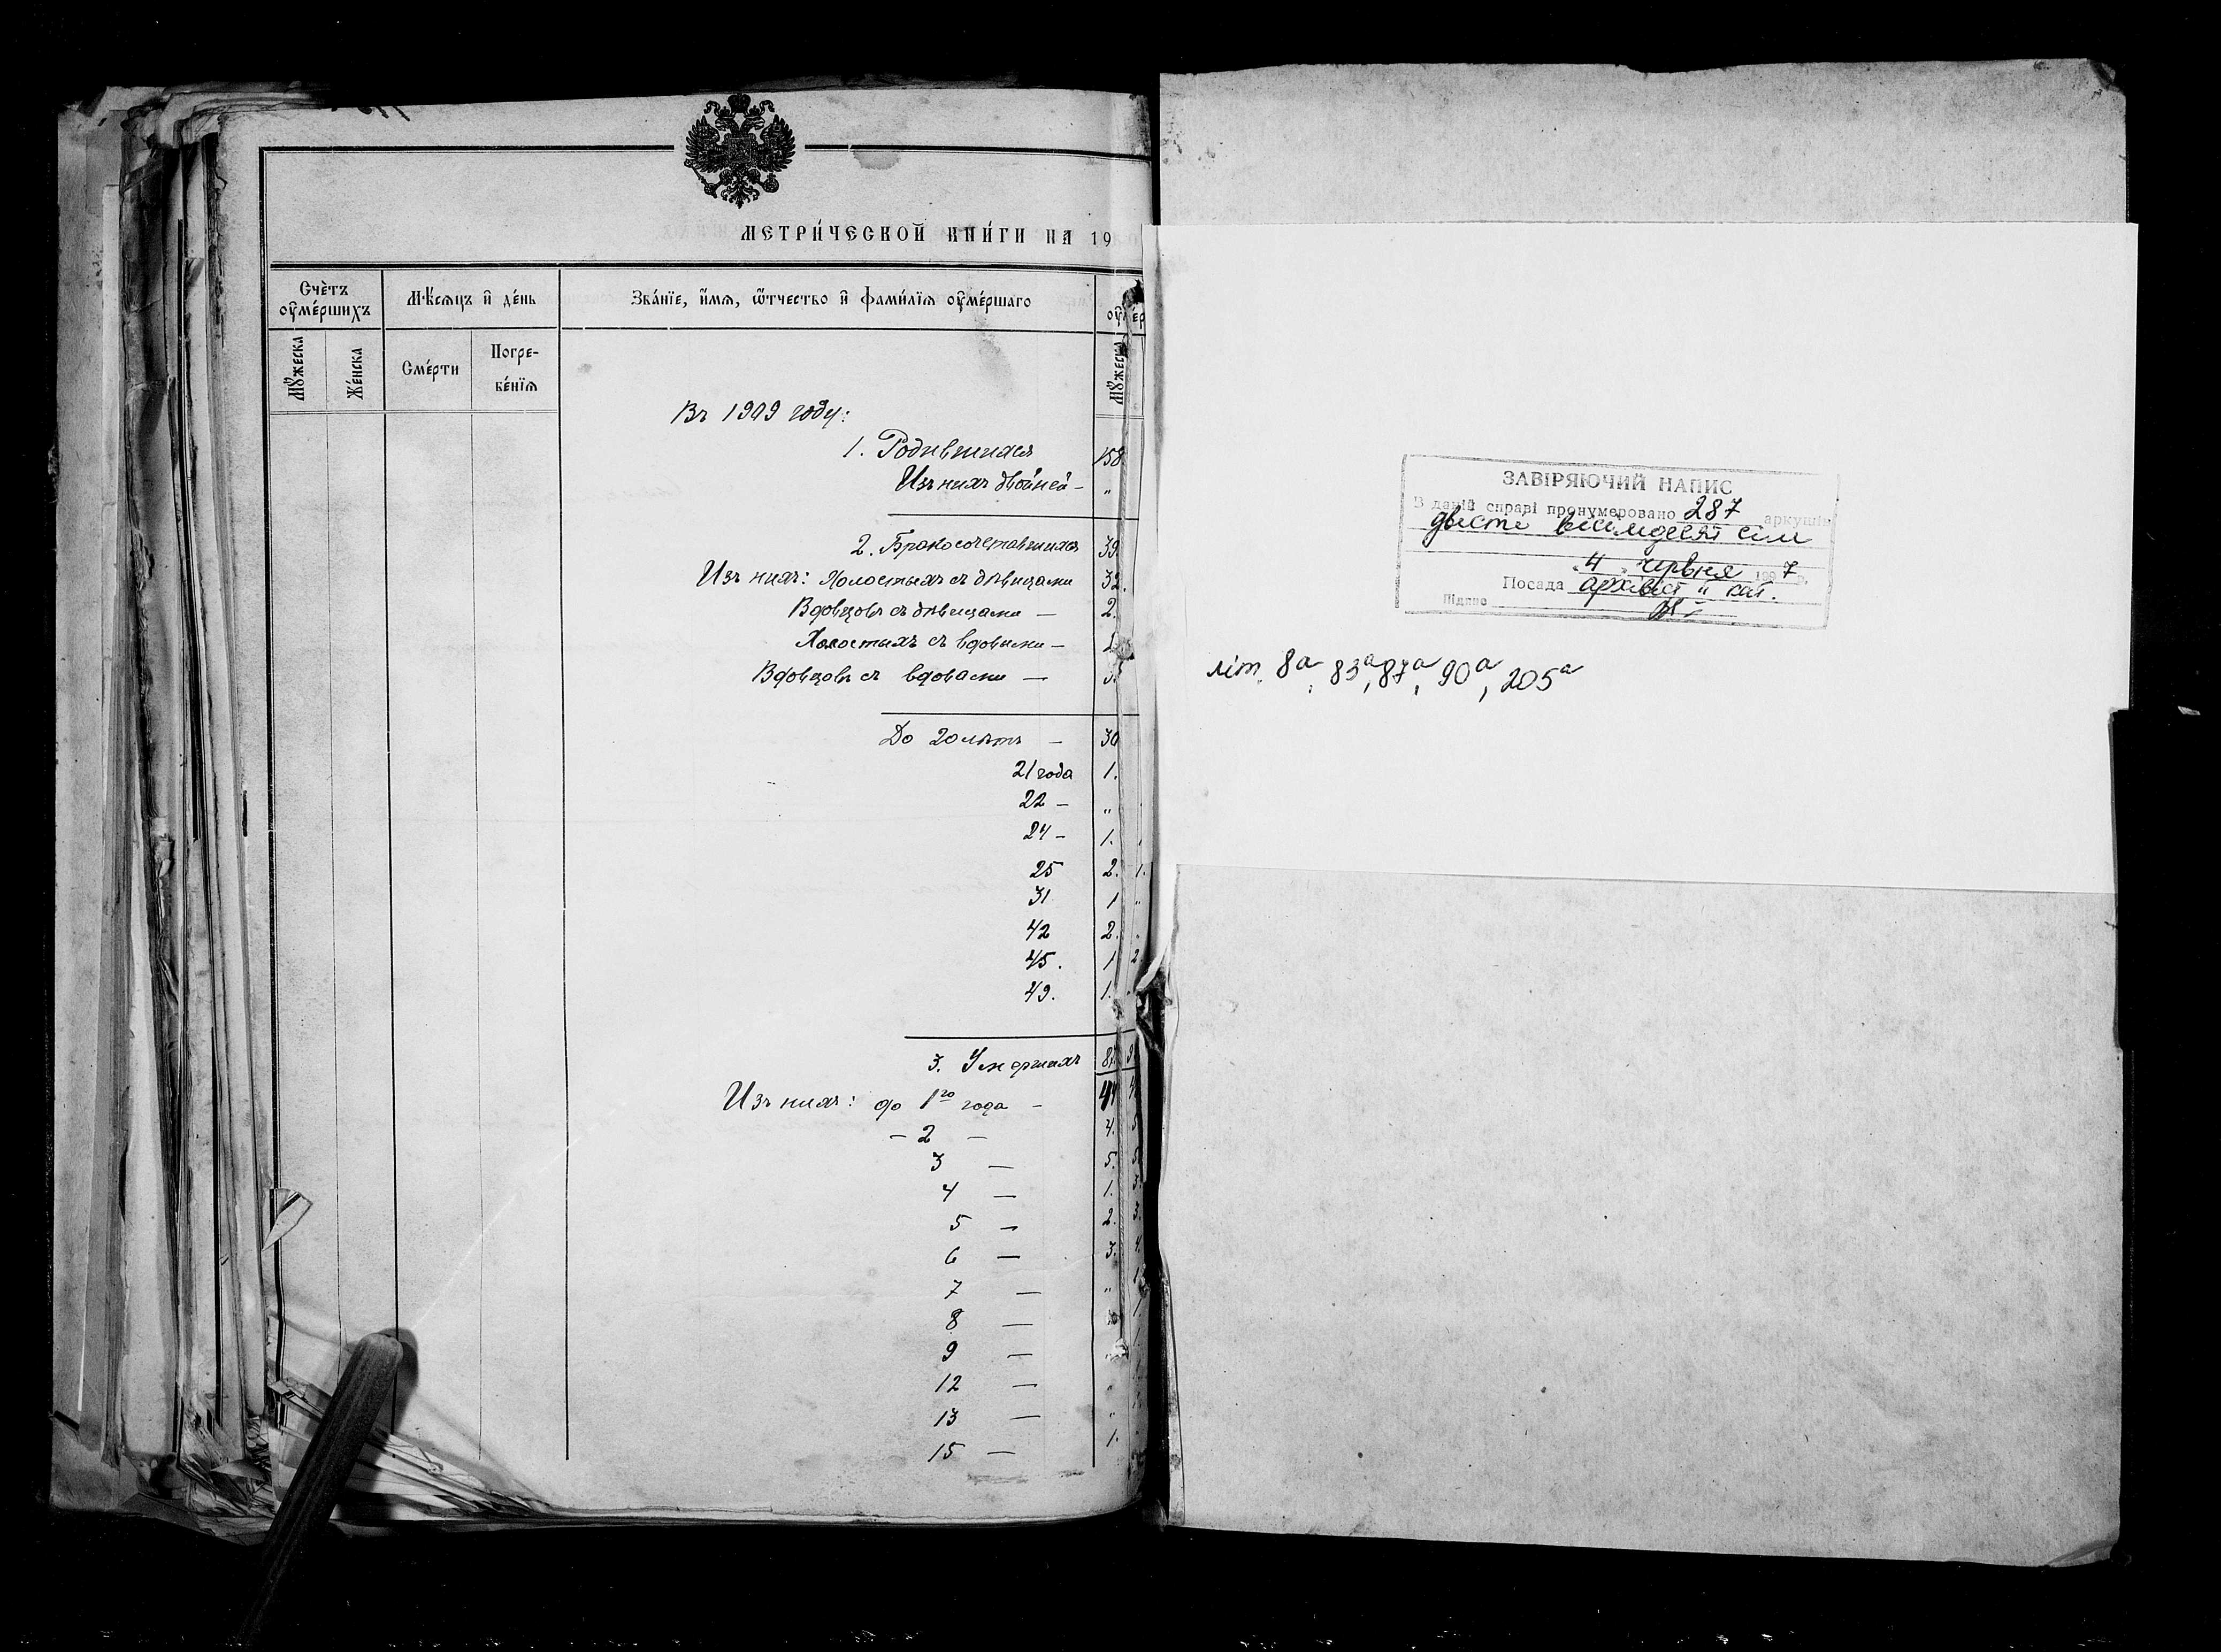 МЕТРИ́ЧЕСКОЙ КНИ́ГИ НА 19
Счётъ оу҆ме́ршихъ
Мѣ́сѧцъ и҆ де́нь
Зва́нїе, и҆́мѧ, ѻ҆́тчество и҆ фами́лїѧ оу҆ме́ршаго
Мꙋ́жеска
Же́нска
Сме́рти
Погре-
бе́нїѧ
Мꙋ́жеска
Въ 1909 году:
1. Родившихся 158
Изъ нихъ двойней - „
2. Бракосочетавшихся 39.
Изъ нихъ: Холостыхъ съ дѣвицами 32.
Вдовцовъ съ дѣвицами — 2.
Холостыхъ съ вдовыми —
Вдовцовъ съ вдовами —
До 20 лѣтъ — 30
21 года 1.
22 — „
24 — 1.
25 2. 1.
31 1 „
42 2. „
45. 1 2
49. 1.
3. Умершихъ 87
Изъ нихъ: до 1го года - 44
— 2 — 4. 5
3 — 5. 5
4 — 1. 3.
5 — 2. 3.
6 — 3. 4.
7 — „
8 —
9 —
12 — „
13 — „
15 — 1.
ЗАВІРЯЮЧИЙ НАПИС
В даній справі пронумеровано 287 аркушів
двісті вісімдесят сім
„4„ червня 1997 р.
Посада архівіст II кат.
Підпис
літ. 8а, 83а, 87а, 90а, 205а